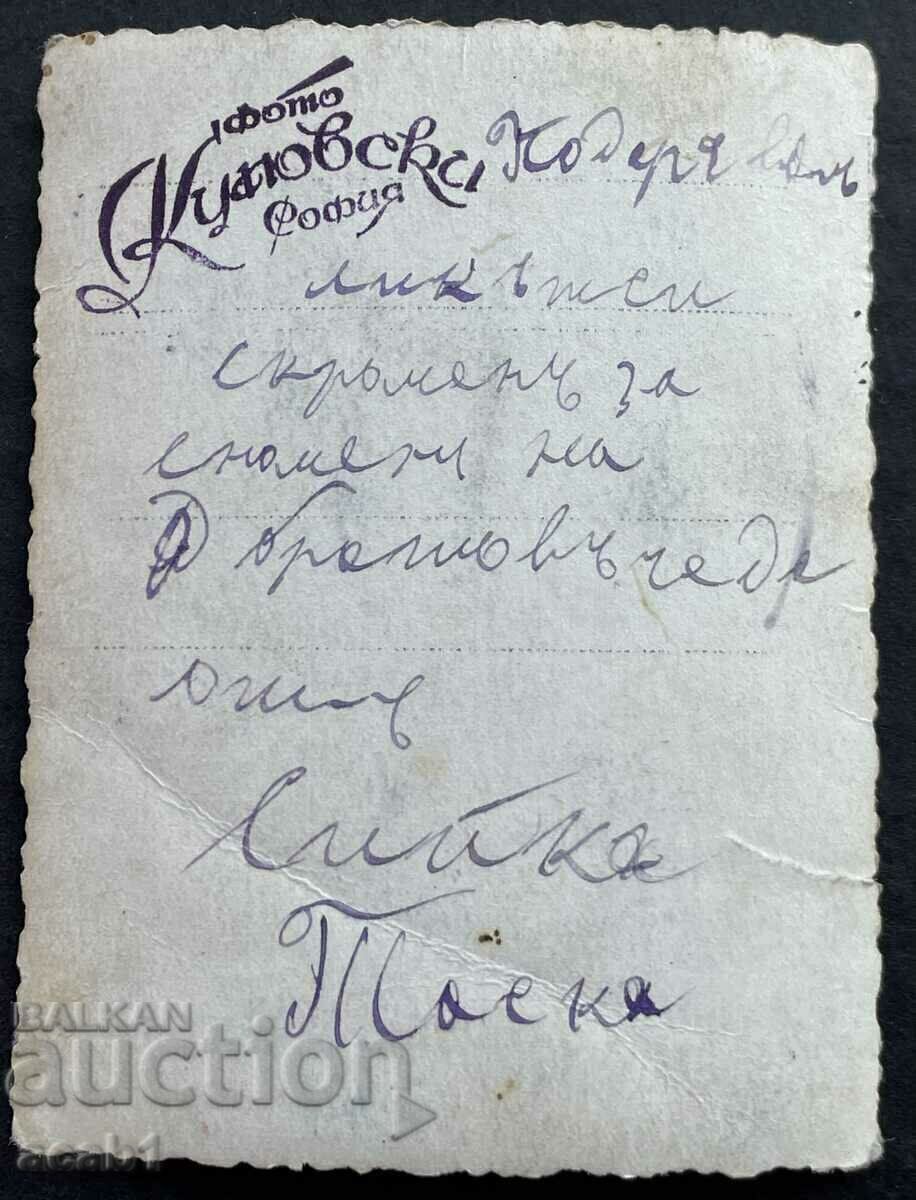 Фото
Кумовски Подарявамъ
София
ликътси
скроменъ за
спомени на
братовъчеда
отъ
Тоска
BALKAN
auction
acab1